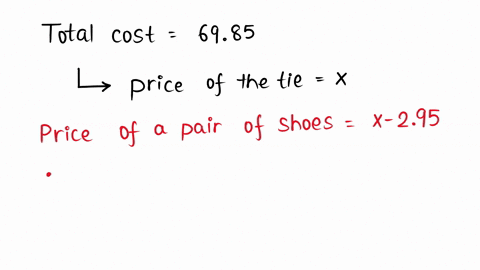 Total cost = 69.85
price of the tie = x
Price of a pair of shoes = x-2.95